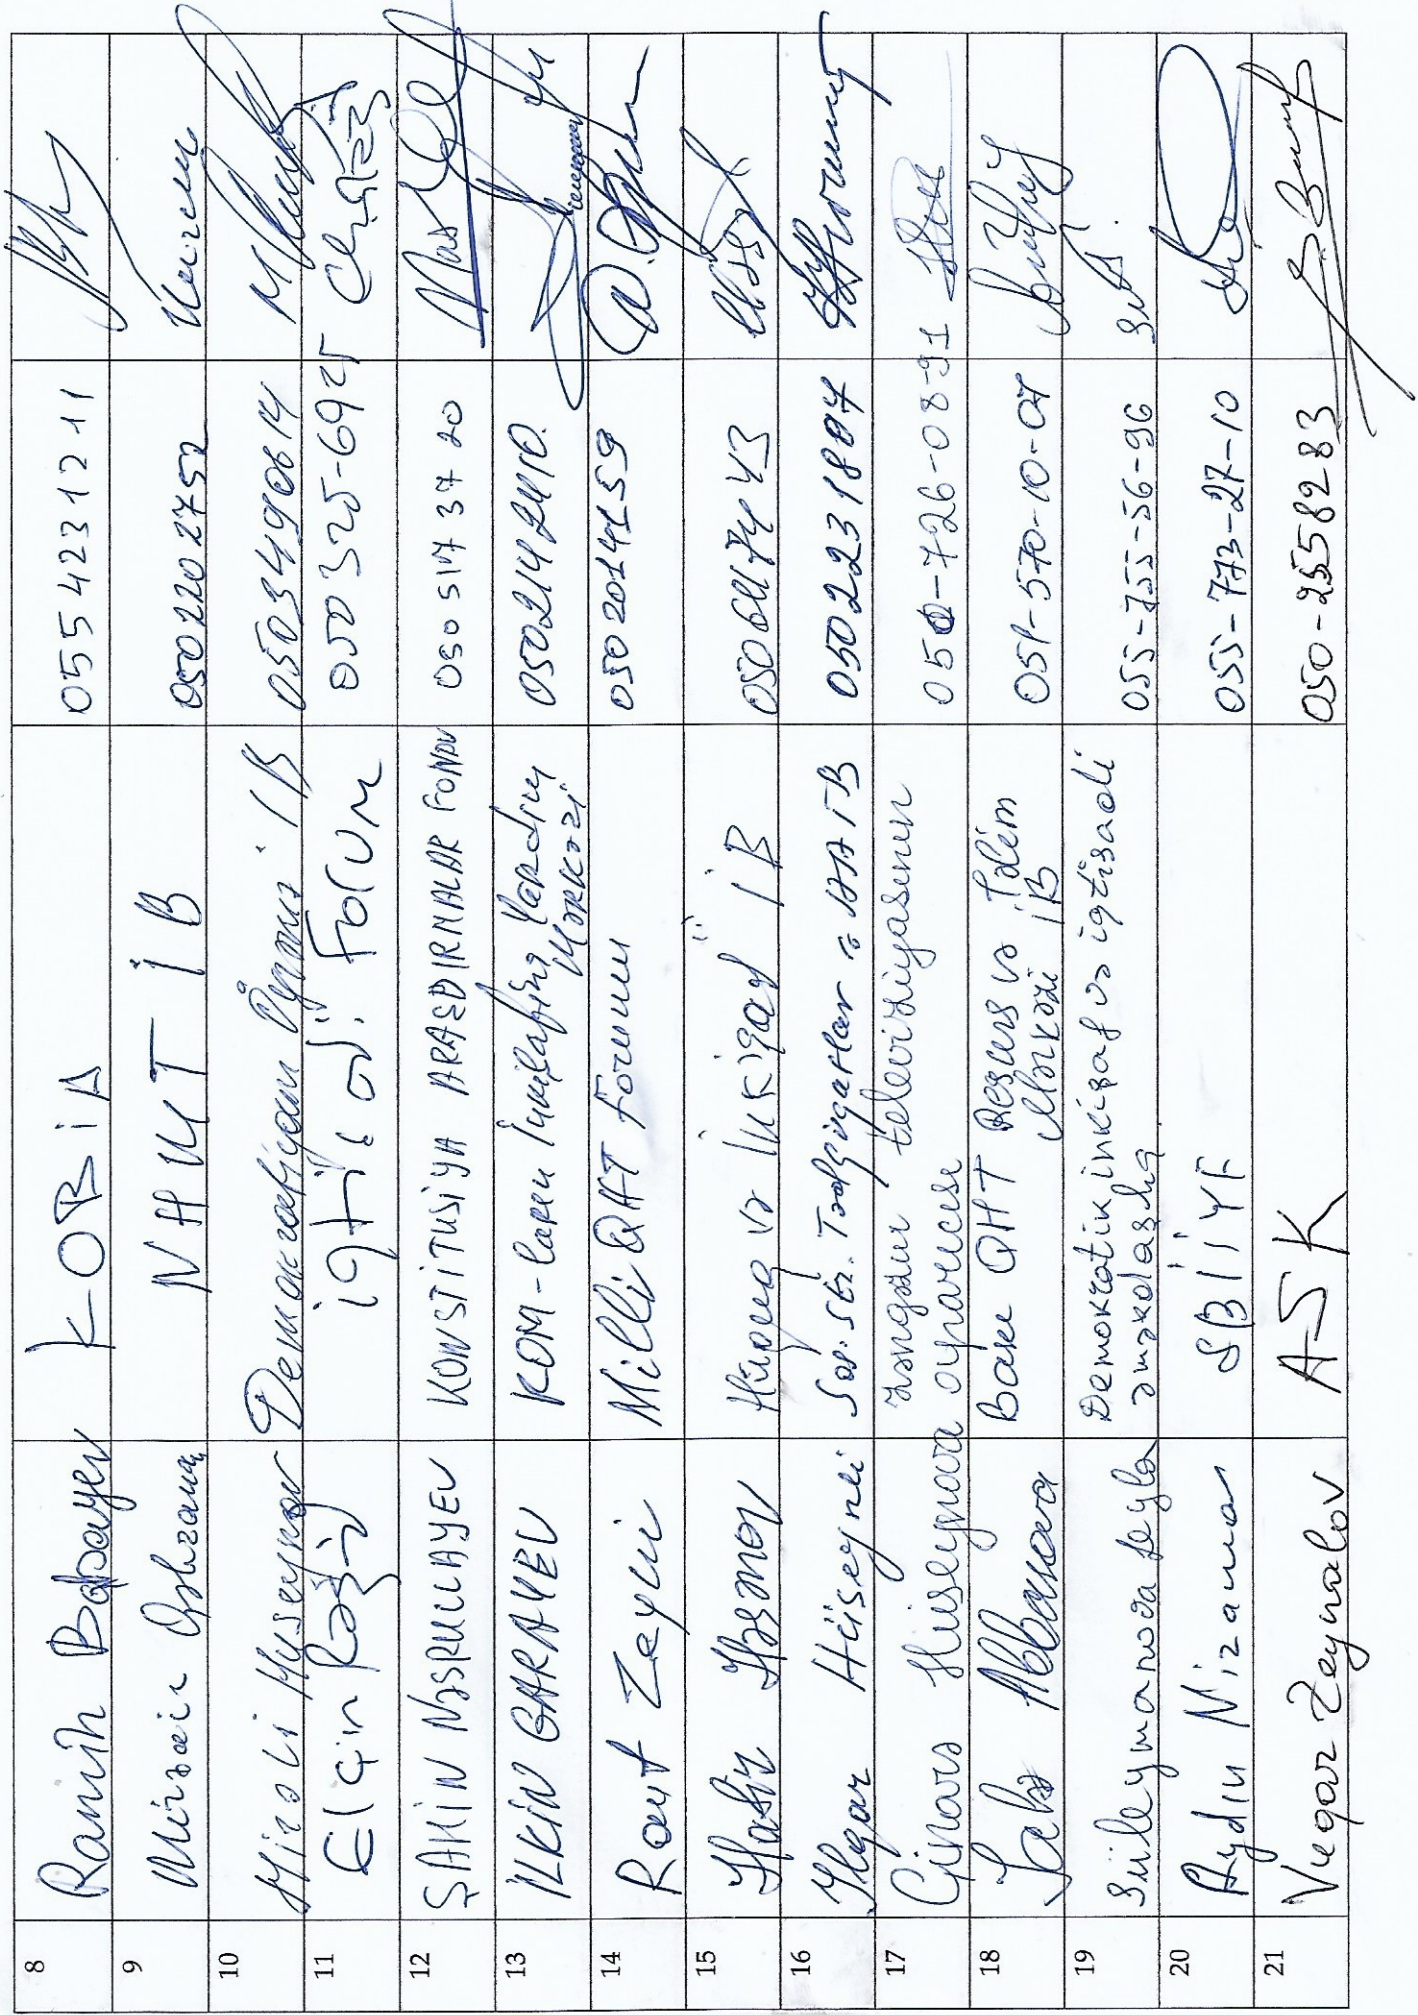 8 Ramin Babayev KOBİA 055 423 12 11
9 NHMT İB 0502202752
10 Mirəli Hüseynov Demokratiyanı Öyrənmə İB 0503490614
11 Elçin Rəşid iqtisadi Forum 050 325-6925
12 ŞAHİN NƏSRULLAYEV KONSTİTUSİYA ARAŞDIRMALAR FONDU 050 517 37 20
13 İLKİN GARAYEV KOM-ların İnkişafına Yardım
Mərkəzi 0502142410.
14 Rauf Zeyni Milli QHT Forumu 0502014159
15 və İnkişaf İB
16 Hüseynli 0502231807
17 Hüseynova televiziyasının 050-726-08-91
18 Abbasova Bakı QHT Resurs və Təlim
Mərkəzi İB 051-570-10-07
19 Süleymanova Leyla Demokratik inkişaf və iqtisadi
əməkdaşlıq 055-755-56-96
20 Aydın 055-773-27-10
21 Vuqar Zeynalov ASK 050-2558283